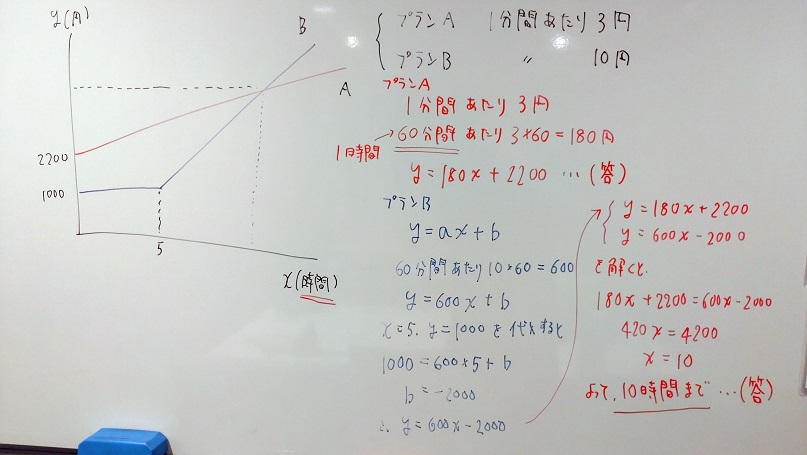 y(円)
B
A
2200
1000
5
x(時間)
プランA 1分間あたり3円
プランB 〃 10円
プランA
1分間あたり3円
1時間
60分間あたり3×60=180円
y=180x+2200 …(答)
プランB
y=ax+b
60分間あたり10×60=600
y=600x+b
x=5、y=1000を代入すると
1000=600×5+b
b=-2000
∴ y=600x-2000
y=180x+2200
y=600x-2000
を解くと、
180x+2200=600x-2000
420x=4200
x=10
よって、10時間まで …(答)